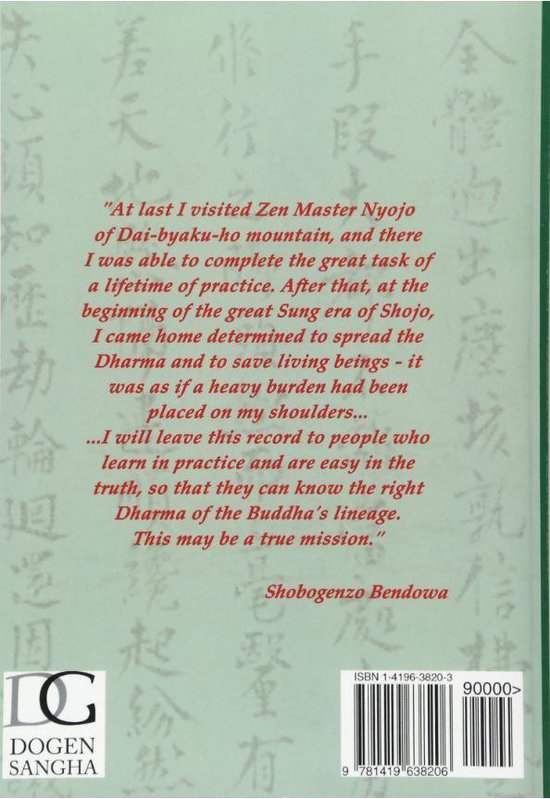 全體逈出塵埃孰信拂
手段大
修行之毫釐有
差天地起紛然
失心須知歷劫輪迴還因
"At last I visited Zen Master Nyojo
of Dai-byaku-ho mountain, and there
I was able to complete the great task of
a lifetime of practice. After that, at the
beginning of the great Sung era of Shojo,
I came home determined to spread the
Dharma and to save living beings - it
was as if a heavy burden had been
placed on my shoulders...
...I will leave this record to people who
learn in practice and are easy in the
truth, so that they can know the right
Dharma of the Buddha's lineage.
This may be a true mission."
Shobogenzo Bendowa
DG
DOGEN
SANGHA
ISBN 1-4196-3820-3
90000>
9 781419 638206